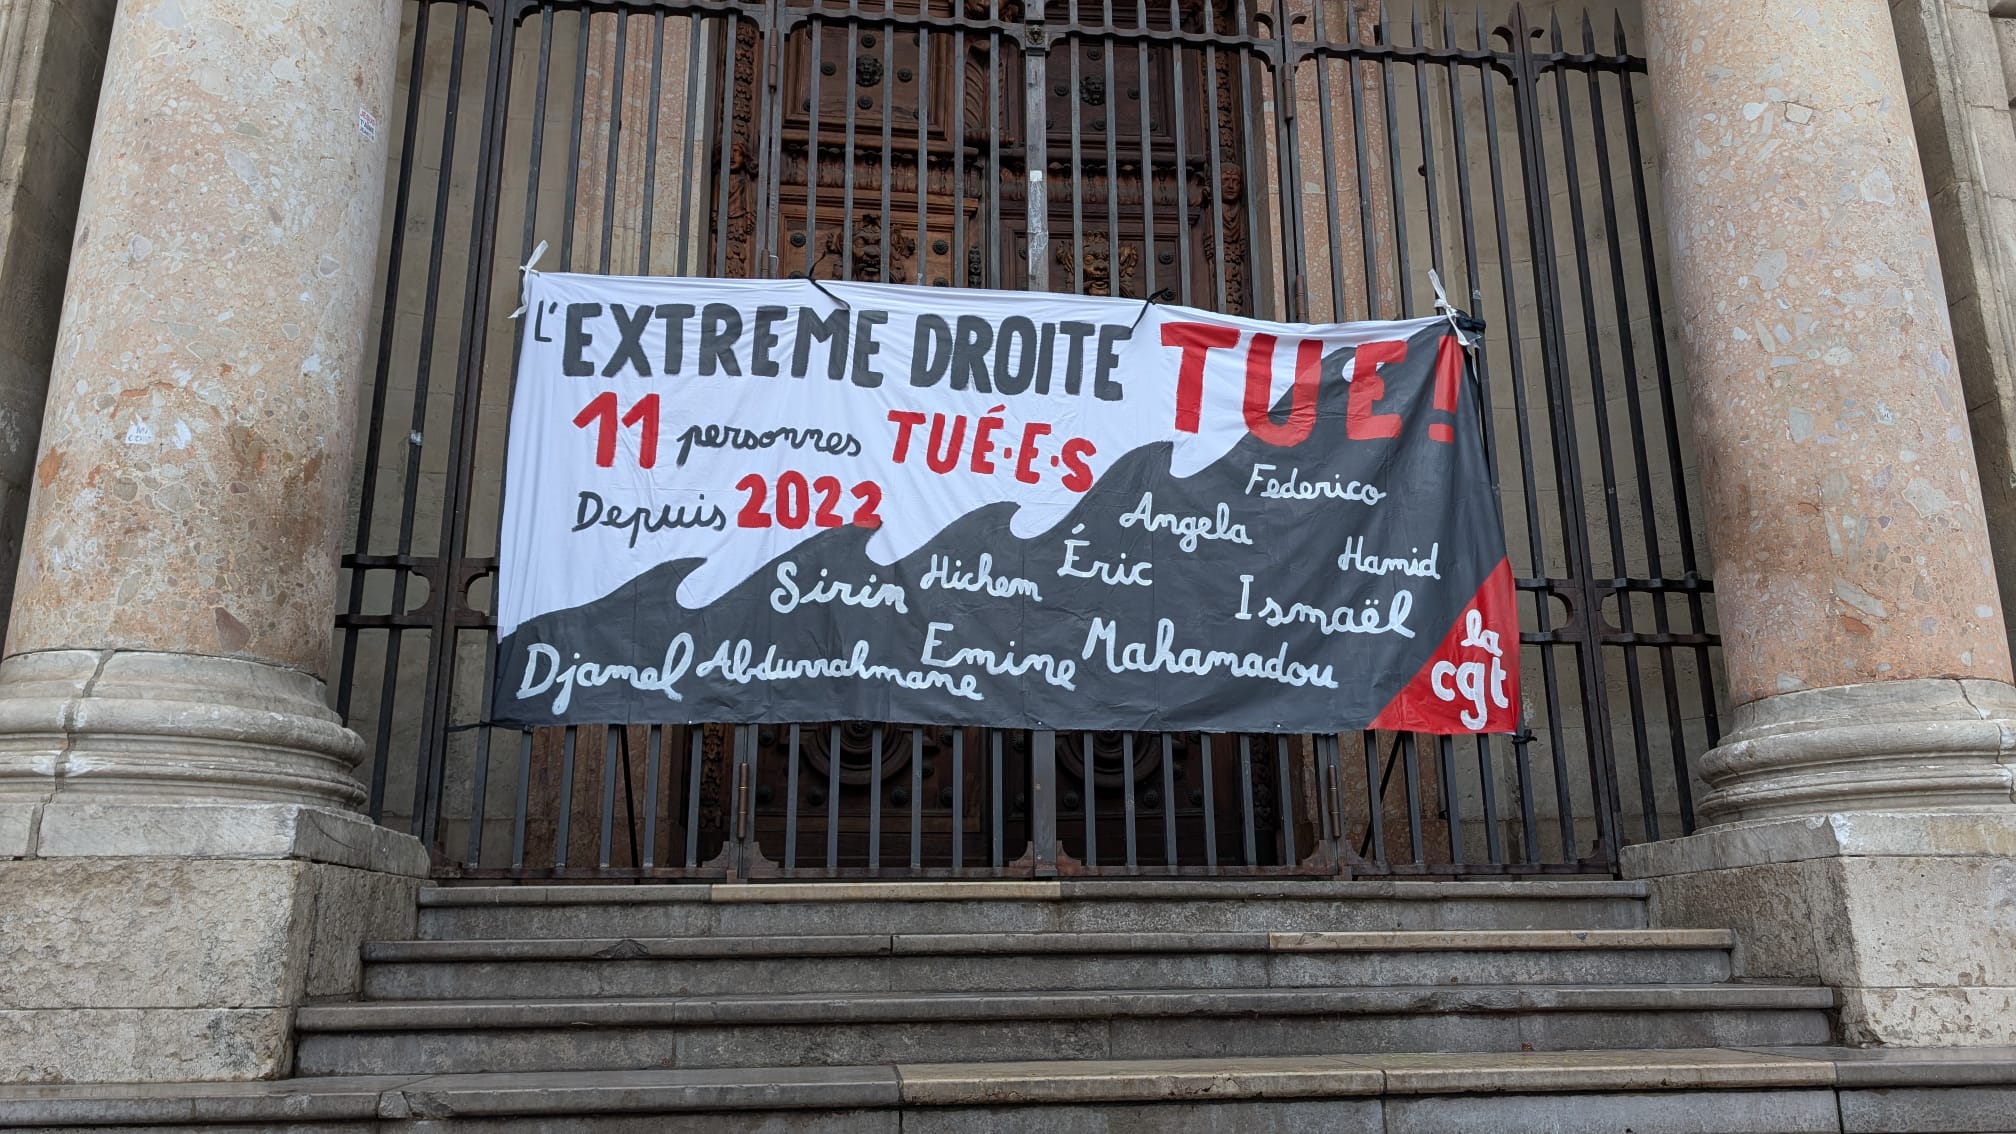 L'EXTREME DROITE TUE!
11 personnes TUÉ·E·S
Depuis 2022
Federico
Angela
Hamid
Éric
Hichem
Sirin
Ismaël
Mahamadou
Emine
Abdurrahmane
Djamel
la
cgt